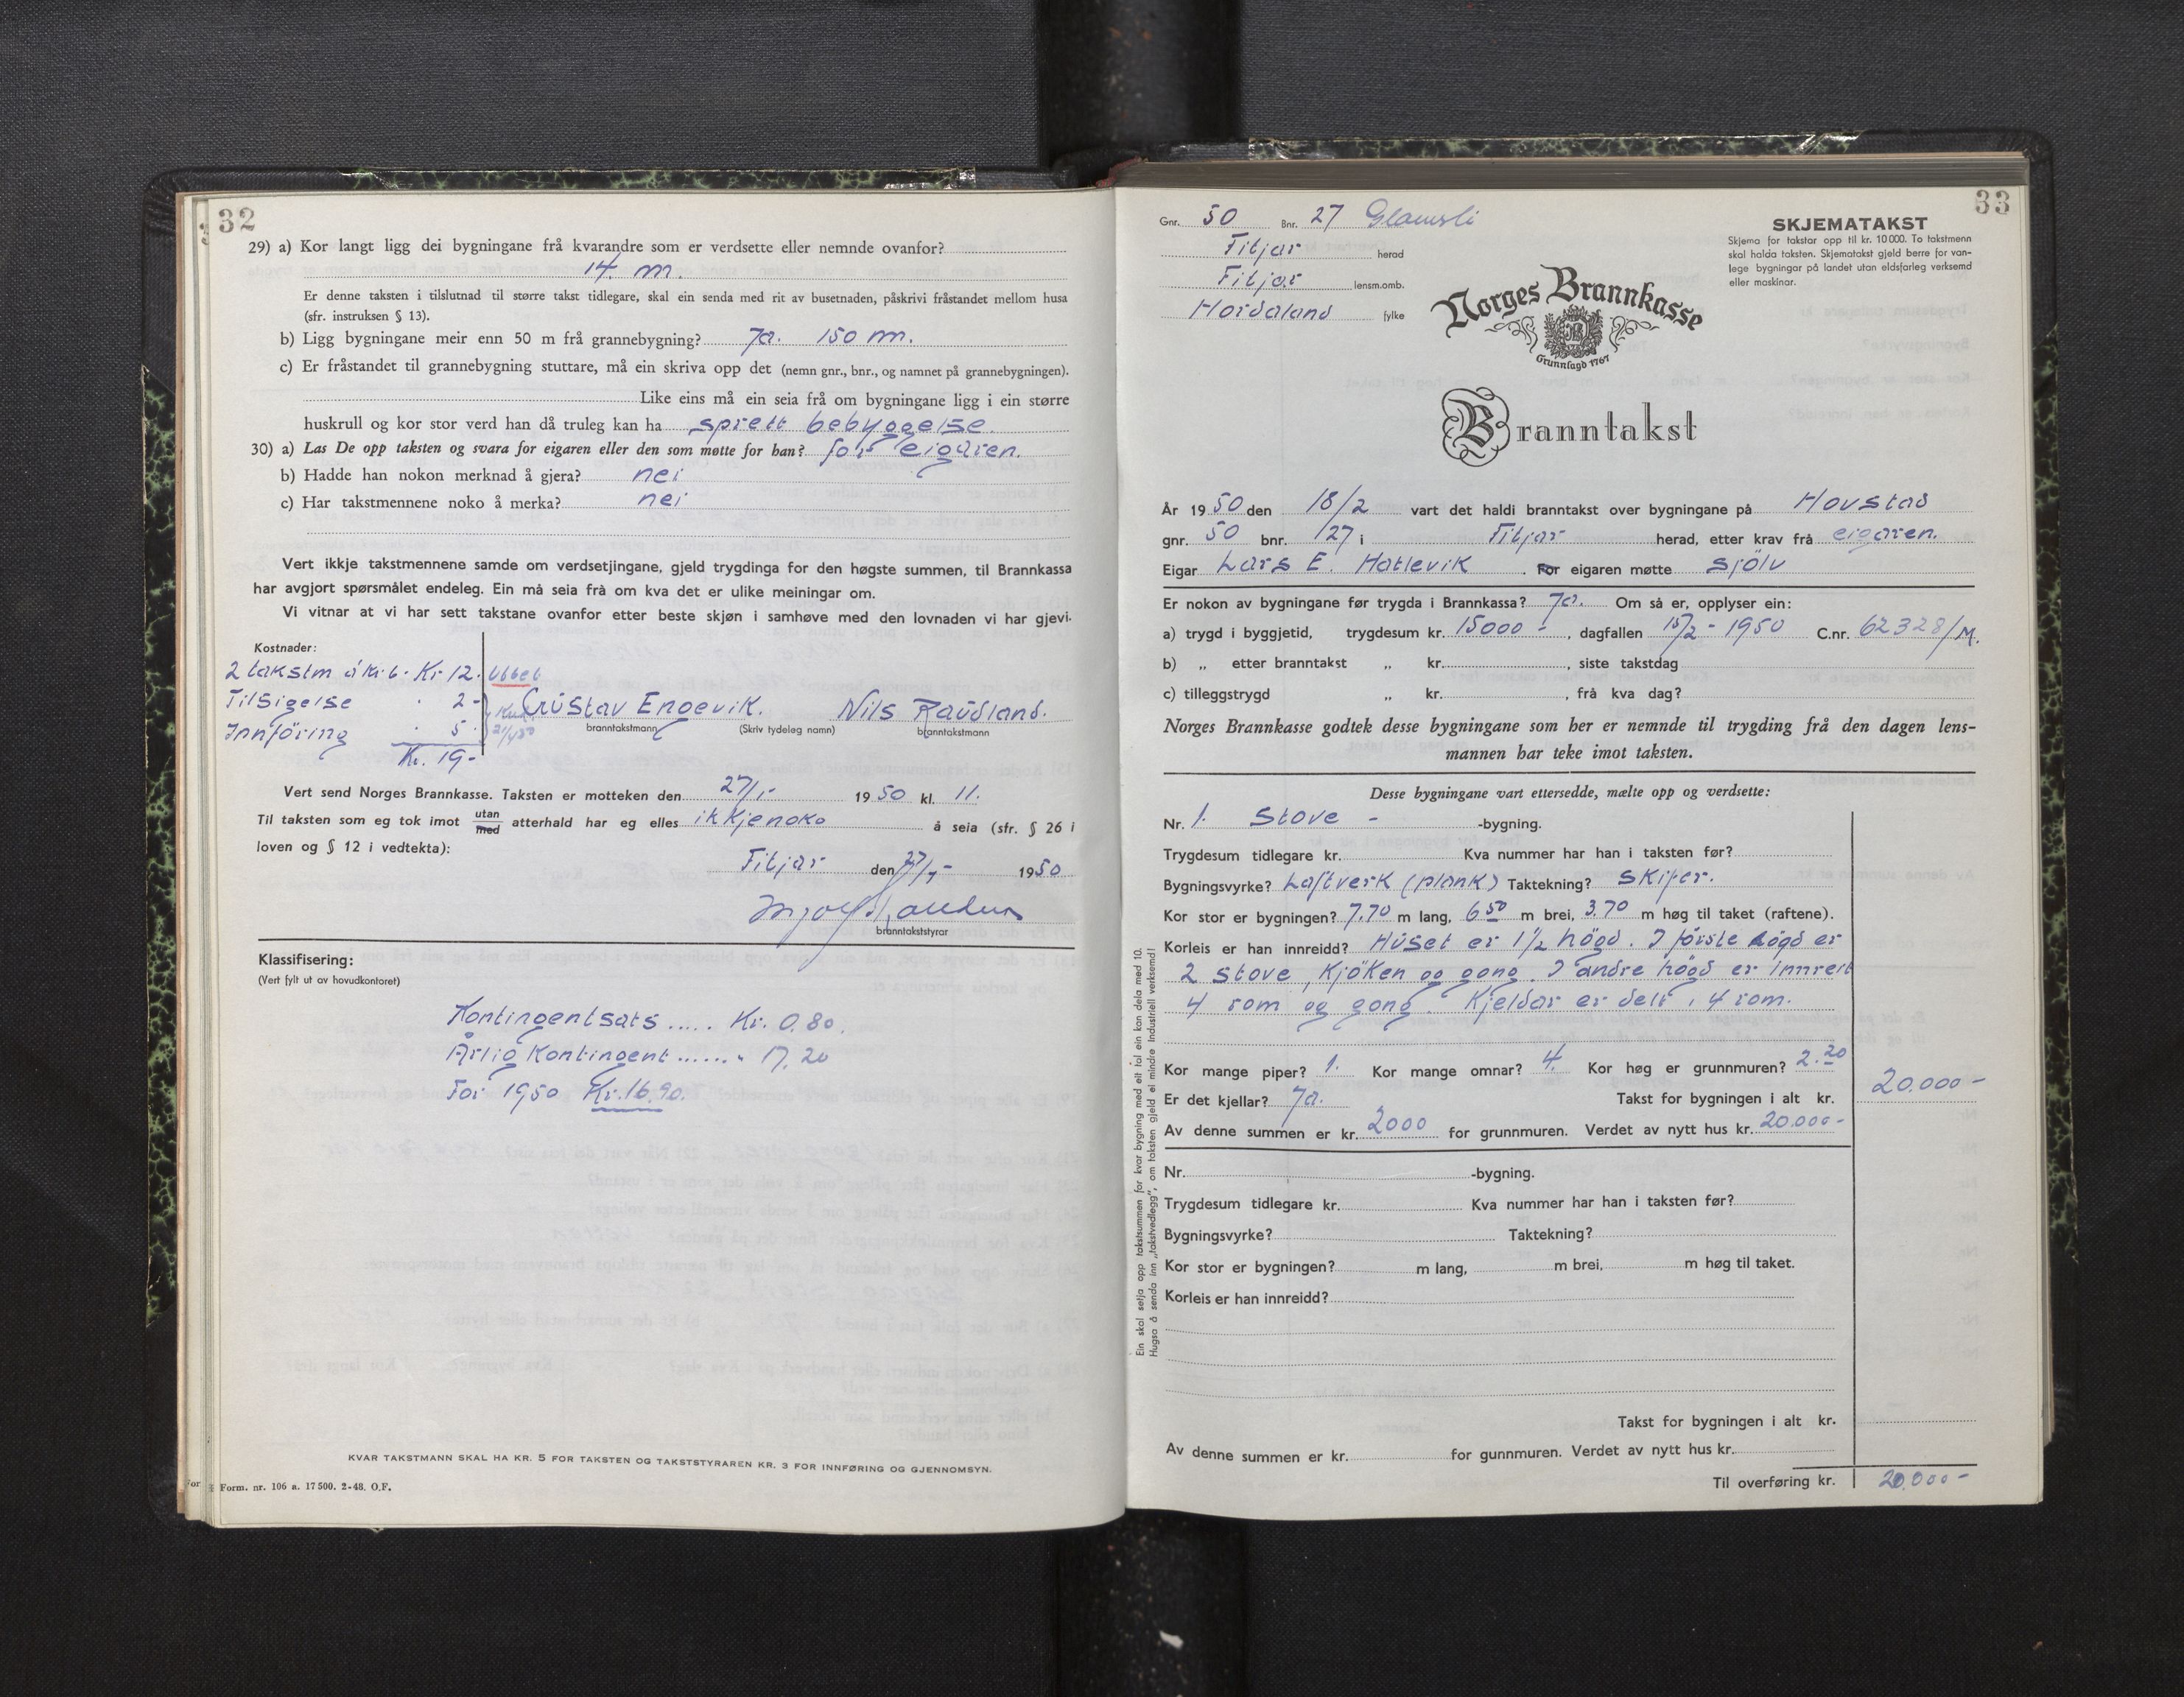 32
29) a) Kor langt ligg dei bygningane frå kvarandre som er verdsette eller nemnde ovanfor?
14 m.
Er denne taksten i tilslutnad til større takst tidlegare, skal ein senda med rit av busetnaden, påskrivi fråstandet mellom husa
(sfr. instruksen § 13).
b) Ligg bygningane meir enn 50 m frå grannebygning? Ja. 150 m.
c) Er fråstandet til grannebygning stuttare, må ein skriva opp det (nemn gnr., bnr., og namnet på grannebygningen).
Like eins må ein seia frå om bygningane ligg i ein større
huskrull og kor stor verd han då truleg kan ha sprett bebyggelse.
30) a) Las De opp taksten og svara for eigaren eller den som møtte for han? for eigaren.
b) Hadde han nokon merknad å gjera? nei
c) Har takstmennene noko å merka? nei
Vert ikkje takstmennene samde om verdsetjingane, gjeld trygdinga for den høgste summen, til Brannkassa
har avgjort spørsmålet endeleg. Ein må seia frå om kva det er ulike meiningar om.
Vi vitnar at vi har sett takstane ovanfor etter beste skjøn i samhøve med den lovnaden vi har gjevi.
Kostnader:
2 takstm á kr. 6. Kr 12.
Tilsigelse " 2-
Innföring " 5
Kr. 19-
Gustav Engevik. Nils Raudland.
branntakstmann (Skriv tydeleg namn) branntakstmann
Vert send Norges Brannkasse. Taksten er motteken den 27/1- 1950 kl. 11.
Til taksten som eg tok imot utan med atterhald har eg elles ikkjenoko å seia (sfr. § 26 i
loven og § 12 i vedtekta):
Fitjar den 27/1- 1950
branntakststyrar
Klassifisering:
(Vert fylt ut av hovudkontoret)
Kontingentsats ..... Kr. 0.80.
Årlig Kontingent ...... " 17.20
For 1950 Kr. 16.90.
KVAR TAKSTMANN SKAL HA KR. 5 FOR TAKSTEN OG TAKSTSTYRAREN KR. 3 FOR INNFØRING OG GJENNOMSYN.
Form. nr. 106 a. 17 500. 2-48. O.F.
33
Gnr. 50 Bnr. 27 Glamsli
Fitjar herad
Fitjar lensm.omb.
Hordaland fylke
SKJEMATAKST
Skjema for takstar opp til kr. 10 000. To takstmenn
skal halda taksten. Skjematakst gjeld berre for van-
lege bygningar på landet utan eldsfarleg verksemd
eller maskinar.
Norges Brannkasse
Grunnlagd 1767
Branntakst
År 1950 den 18/2 vart det haldi branntakst over bygningane på Hovstad
gnr. 50 bnr. 127 i Fitjar herad, etter krav frå eigaren.
Eigar Lars E. Hatlevik. For eigaren møtte sjölv
Er nokon av bygningane før trygda i Brannkassa? Ja. Om så er, opplyser ein:
a) trygd i byggjetid, trygdesum kr. 15000 -, dagfallen 15/2 - 1950 C.nr. 62328/M.
b) „ etter branntakst „ kr. , siste takstdag
c) tilleggstrygd „ kr. , frå kva dag?
Norges Brannkasse godtek desse bygningane som her er nemnde til trygding frå den dagen lens-
mannen har teke imot taksten.
Desse bygningane vart ettersedde, mælte opp og verdsette:
Nr. 1. Stove - -bygning.
Trygdesum tidlegare kr. Kva nummer har han i taksten før?
Bygningsvyrke? Laftverk (plank) Taktekning? Skifer.
Kor stor er bygningen? 7.70 m lang, 6 50 m brei, 3.70 m høg til taket (raftene).
Korleis er han innreidd? Huset er 1½ högd. I förste högd er
2 stove, Kjöken og gong. I andre högd er innreit
4 rom og gong. Kjeldar er delt i 4 rom.
Kor mange piper? 1. Kor mange omnar? 4. Kor høg er grunnmuren? 2.20
Er det kjellar? Ja. Takst for bygningen i alt kr. 20.000 -
Av denne summen er kr. 2000 for grunnmuren. Verdet av nytt hus kr. 20.000-
Nr. -bygning.
Trygdesum tidlegare kr. Kva nummer har han i taksten før?
Bygningsvyrke? Taktekning?
Kor stor er bygningen? m lang, m brei, m høg til taket.
Korleis er han innreidd?
Takst for bygningen i alt kr.
Av denne summen er kr. for gunnmuren. Verdet av nytt hus kr.
Til overføring kr. 20.000 -
Ein skal setja opp takstsummen for kvar bygning med eit tal ein kan dela med 10.
Hugsa å senda inn „takstvedlegg", om taksten gjeld ei mindre industriell verksemd!